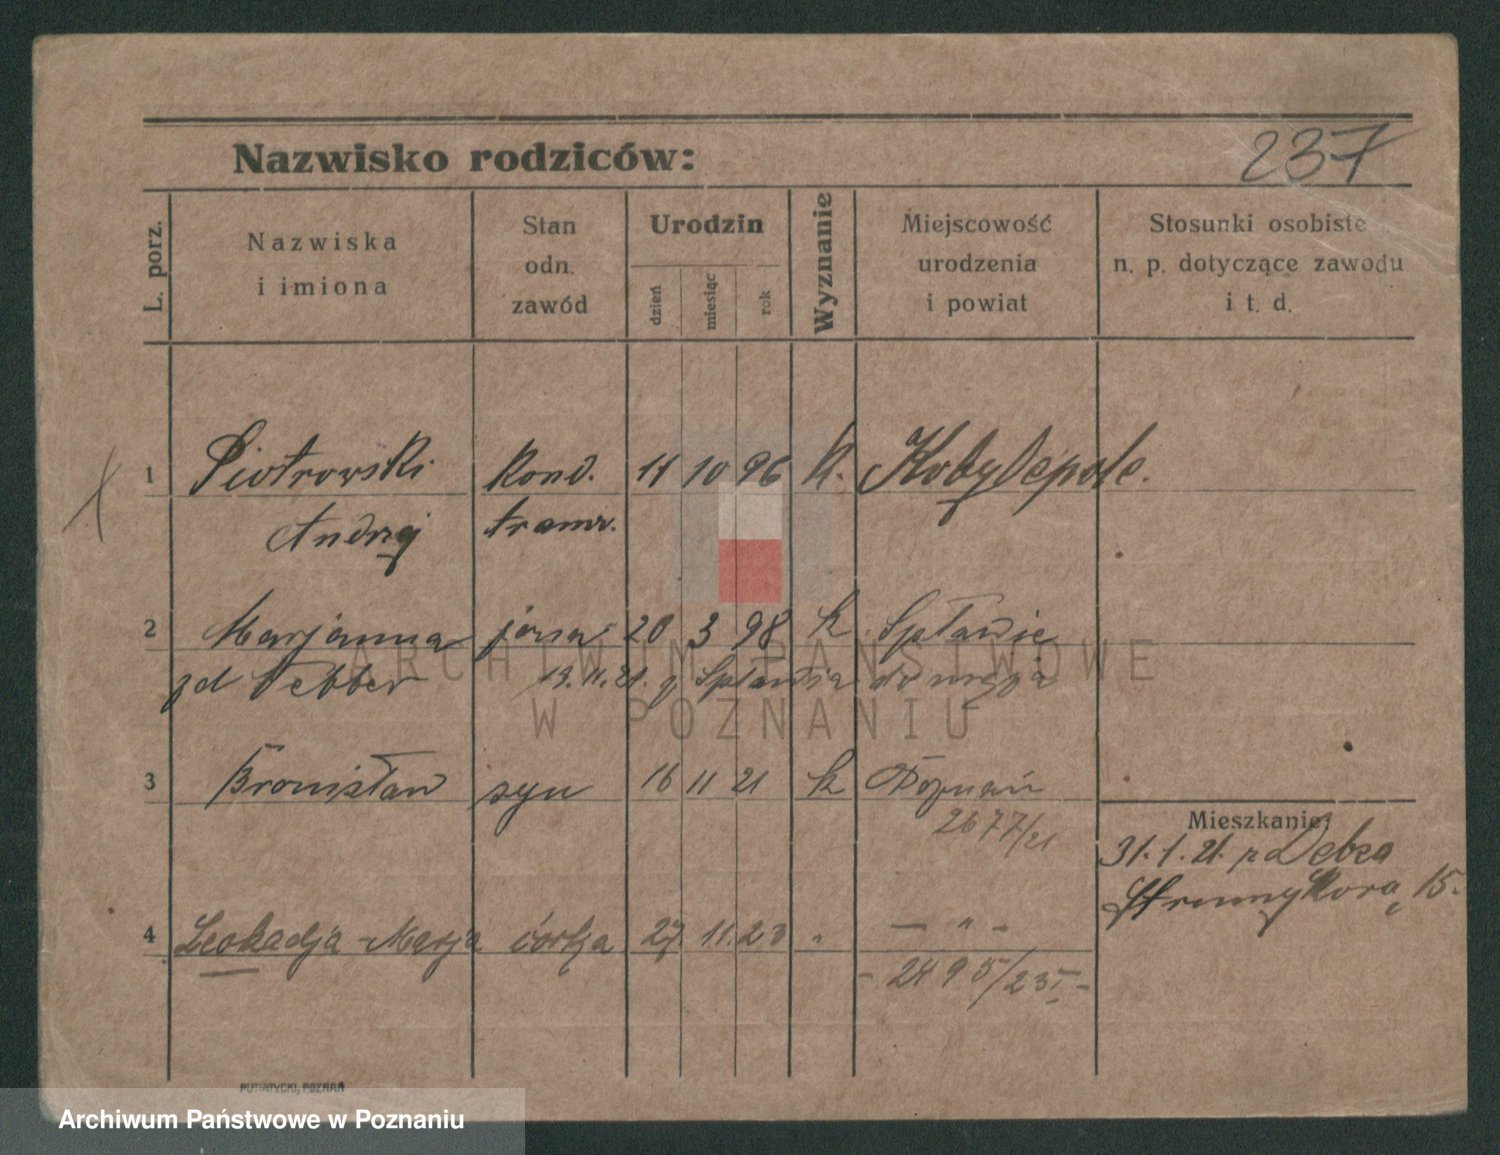 237
Nazwisko rodziców:
L. porz.
Nazwiska
i imiona
Stan
odn.
zawód
Urodzin
dzień
miesiąc
rok
Wyznanie
Miejscowość
urodzenia
i powiat
Stosunki osobiste
n. p. dotyczące zawodu
i t. d.
1 Piotrowski Kond. 11 10 96 k. Kobylepole.
Andrzej tramw.
2 Marjanna żona 20 3 98 k Spławie
zd Webber 19.11.21. z Spławia do męża
3 Bronisław syn 16 11 21 k Poznań
2677/21
Mieszkanie:
31.1.21. Dębca
15.
4 Leokadja Marja córka 27 11. 23 " — " —
- 2495/23 I -
PUTIATYCKI, POZNAŃ
ARCHIWUM PAŃSTWOWE
W POZNANIU
Archiwum Państwowe w Poznaniu